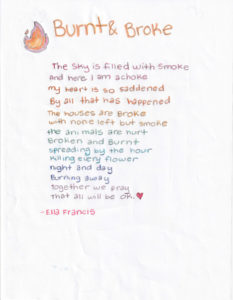 Burnt & Broke
The Sky is filled with Smoke
and here I am achoke
my heart is so saddened
By all that has happened
The houses are Broke
with none left but smoke
the animals are hurt
Broken and Burnt
spreading by the hour
Killing every flower
night and day
Burning away
Together we pray
That all will be Oh.
-Ella Francis